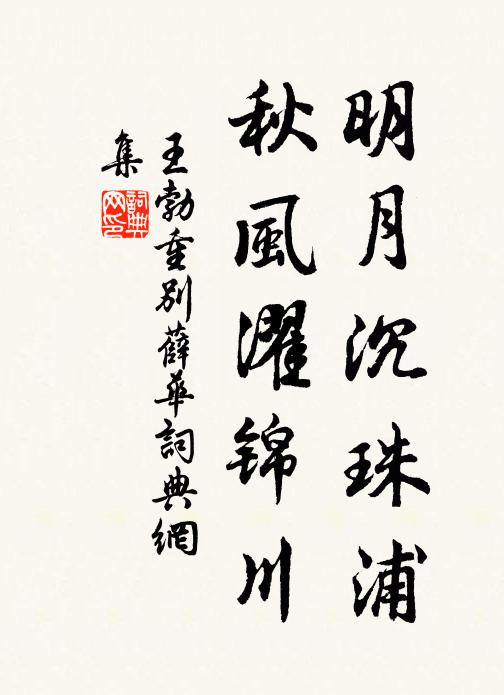 明月沉珠浦
秋風濯錦川
王勃重別薛華詞典網
集
詞典網印